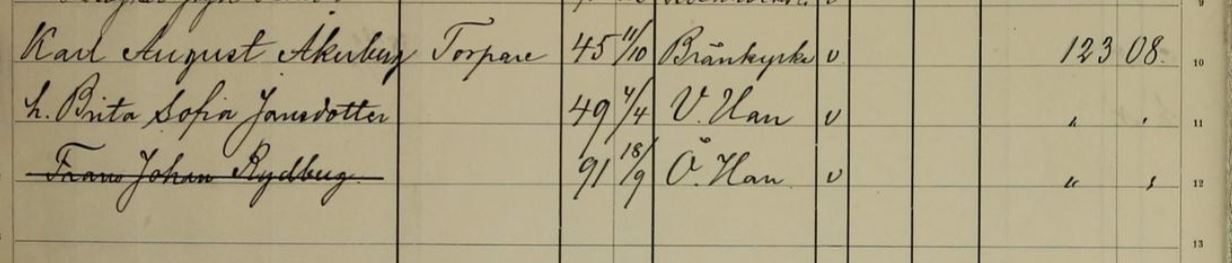 Karl August Åkerberg Torpare 45 11/10 Brännkyrka v 123 08. 10
h. Brita Sofia Jansdotter 49 4/4 V. Han v " " 11
Frans Johan Rydberg 91 18/9 Ö. Han v " " 12
13